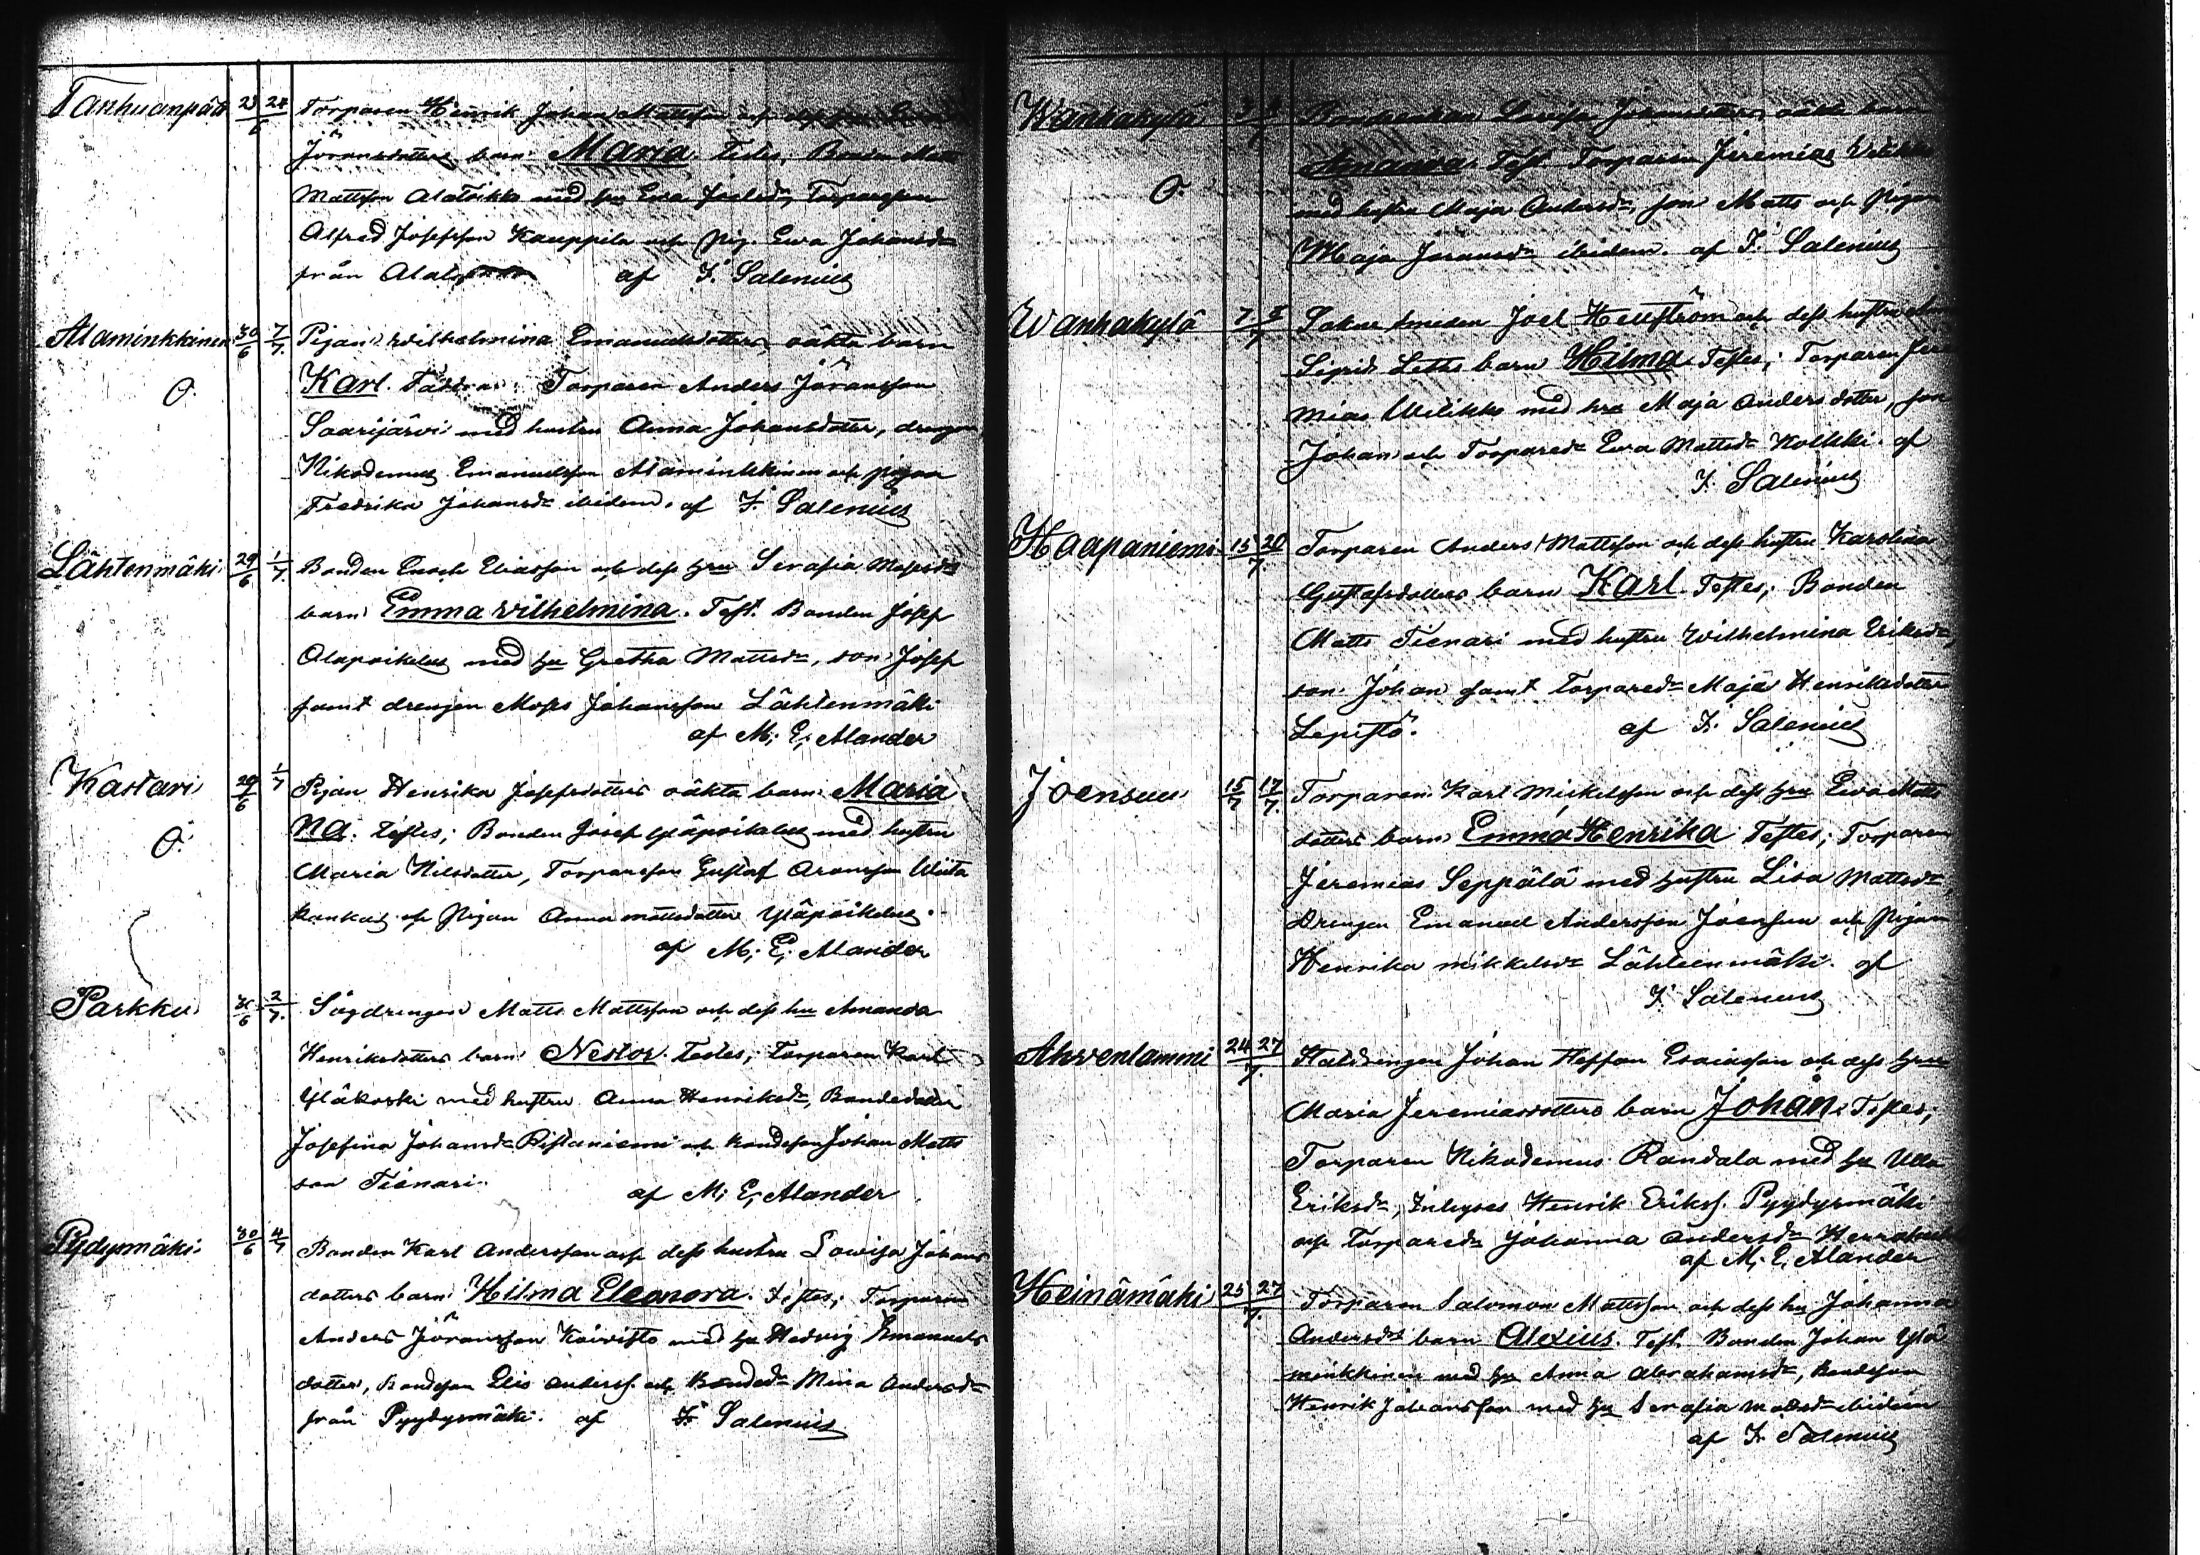 Tanhuanpää 23/6 24 Torparen Henrik Johan Mattsson och
Jöransdotters barn Maria. Testes, Bonden Matts
Mattsson Alatoikko med hu Ewa Joelsdr, Torparesson
Alfred Josefsson Kauppila och Pig. Ewa Johansdr
från af F. Salenius
Alaminkkinen 30/6 7/7. Pigan Wilhelmina Emanuelsdotters oäkta barn
O. Karl. Faddrar: Torparen Anders Jöransson
Saarijärvi med hustru Anna Johansdotter, drengen
Nikodemus Emanuelsson Alaminkkinen och pigan
Fredrika Johansdr ibidem. af F. Salenius
Lähtenmäki 29/6 1/7. Bonden Enoch Eliasson och dess hru Serafia Mosesdrs
barn Emma Wilhelmina. Test. Bonden Josef
Alapoikelus med hu Gretha Mattsdr, son Josef
samt drengen Moses Johansson Lähtenmäki
af M. E. Alander
Kastari 29/6 1/7 Pigan Henrika Josefsdotters oäkta barn Maria
O. na. Testes; Bonden Josef Yläpoikelus med hustru
Maria Nilsdotter, Torparesson Gustaf Aronsson Wiita
kangas och Pigan Anna Mattsdotter Yläpoikelus.
af M. E. Alander
Parkku 2/7. Sågdrengen Matts Mattsson och dess hu Amanda
Henriksdotters barn Nestor. Testes; Torparen Karl
Yläkoski med hustru Anna Henriksdr, Bondedotter
Josefina Johansdr Ristaniemi och bondeson Johan Matts
son Tienari. af M. E. Alander
Pydysmäki 30/6 4/7 Bonden Karl Andersson och dess hustru Lowisa Johans
dotters barn Hilma Eleonora. Testes; Torparen
Anders Jöransson Koivisto med hu Hedvig Emanuels
dotter, bondeson Elis Anderss. och Bonded Mina Andersdr
från Pyydysmäki. af F. Salenius
Wanhakylä Lovisa Johansdotters oäkta barn
O Amanda. Test. Torparen Jeremias
med hustru Maja Andersdr, son Matts och Pigan
Maja Joransdr ibidem. af F. Salenius
Wanhakylä 7 8/7 Soknesmeden Joel Hellström och dess hustru
Sigrid barn Hilma. Testes; Torparen Jere
mias Uilikko med hru Maja Andersdotter, son
Johan och Torpared Ewa Mattsdr Kolkki. af
F. Salenius
Haapaniemi 15 20/7 Torparen Anders Mattsson och dess hustru Karolina
Gustafsdotters barn Karl. Testes; Bonden
Matts Tienari med hustru Wilhelmina Eriksdr,
son Johan samt Torpared Maja Henriksdotter
Lepistö. af F. Salenius
Joensuu 15/7 17/7. Torparen Karl Mickelsson och dess hru Ewa Matts
dotters barn Emma Henrika Testes; Torparen
Jeremias Seppälä med hustru Lisa Mattsdr,
Drengen Emanuel Andersson Joensuu och Pigan
Henrika Mikkelsdr Lähteenmäki. af
F. Salenius
Ahvenlammi 24 27/7. Johan Steffan Esaiasson och dess hru
Maria Jeremiasdotters barn Johan. Testes;
Torparen Nikodemus Randala med hu Ulla
Eriksdr, Inhyses Henrik Erikss. Pyydysmäki
och Torpared Johanna Andersdr
af M. E. Alander
Heinämäki 25 27/7. Torparen Salomon Mattsson och dess hu Johanna
Andersdrs barn Alexius. Test. Bonden Johan Ylä
minkkinen med hu Anna Abrahamsdr, Bondeson
Henrik Johansson med hu Serafia Mattsdr ibidem
af F. Salenius